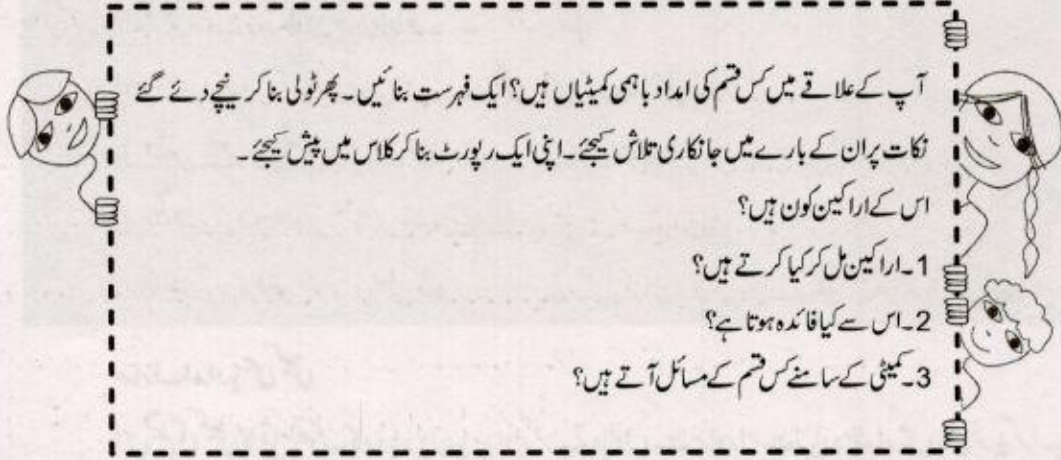 آپ کے علاقے میں کس قسم کی امداد باہمی کمیٹیاں ہیں؟ ایک فہرست بنائیں۔ پھر ٹولی بنا کر نیچے دئے گئے
نکات پر ان کے بارے میں جانکاری تلاش کیجئے۔ اپنی ایک رپورٹ بنا کر کلاس میں پیش کیجئے۔
اس کے اراکین کون ہیں؟
1۔ اراکین مل کر کیا کرتے ہیں؟
2۔ اس سے کیا فائدہ ہوتا ہے؟
3۔ کمیٹی کے سامنے کس قسم کے مسائل آتے ہیں؟